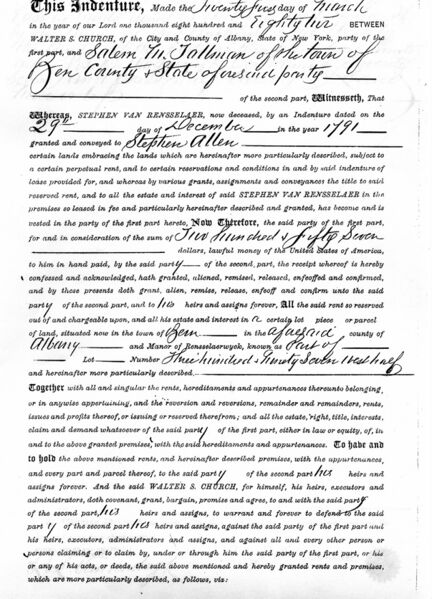 This Indenture, Made the Twenty first day of March
in the year of our Lord one thousand eight hundred and Eighty two BETWEEN
WALTER S. CHURCH, of the City and County of Albany, State of New York, party of the
first part, and Salem M. Tallman of the town of
Bern County & State aforesaid party
of the second part, Witnesseth, That
Whereas, STEPHEN VAN RENSSELAER, now deceased, by an Indenture dated on the
29th day of December in the year 1791
granted and conveyed to Stephen Allen
certain lands embracing the lands which are hereinafter more particularly described, subject to
a certain perpetual rent, and to certain reservations and conditions in and by said indenture of
lease provided for, and whereas by various grants, assignments and conveyances the title to said
reserved rent, and to all the estate and interest of said STEPHEN VAN RENSSELAER in the
premises so leased in fee and particularly hereinafter described and granted, has become and is
vested in the party of the first part hereto, Now Therefore, the said party of the first part,
for and in consideration of the sum of Two Hundred & fifty Seven
dollars, lawful money of the United States of America,
to him in hand paid, by the said party of the second part, the receipt whereof is hereby
confessed and acknowledged, hath granted, aliened, remised, released, enfeoffed and confirmed,
and by these presents doth grant, alien, remise, release, enfeoff and confirm unto the said
party of the second part, and to his heirs and assigns forever, All the said rent so reserved
out of and chargeable upon, and all his estate and interest in a certain lot piece or parcel
of land, situated now in the town of Bern in the aforesaid county of
Albany and Manor of Rensselaerwyck, known as Part of
Lot Number Three hundred & ninety Seven west half
and hereinafter more particularly described.
Together with all and singular the rents, hereditaments and appurtenances thereunto belonging,
or in anywise appertaining, and the reversion and reversions, remainder and remainders, rents,
issues and profits thereof, or issuing or reserved therefrom; and all the estate, right, title, interests,
claim and demand whatsoever of the said party of the first part, either in law or equity, of, in
and to the above granted premises, with the said hereditaments and appurtenances. To have and
to hold the above mentioned rents, and hereinafter described premises, with the appurtenances,
and every part and parcel thereof, to the said party of the second part his heirs and
assigns forever. And the said WALTER S. CHURCH, for himself, his heirs, executors and
administrators, doth covenant, grant, bargain, promise and agree, to and with the said party
of the second part, his heirs and assigns, to warrant and forever to defend to the said
party of the second part his heirs and assigns, against the said party of the first part and
his heirs, executors, administrators and assigns, and against all and every other person or
persons claiming or to claim by, under or through him the said party of the first part, or his
or any of his acts, or deeds, the said above mentioned and hereby granted rents and premises,
which are more particularly described, as follows, viz: